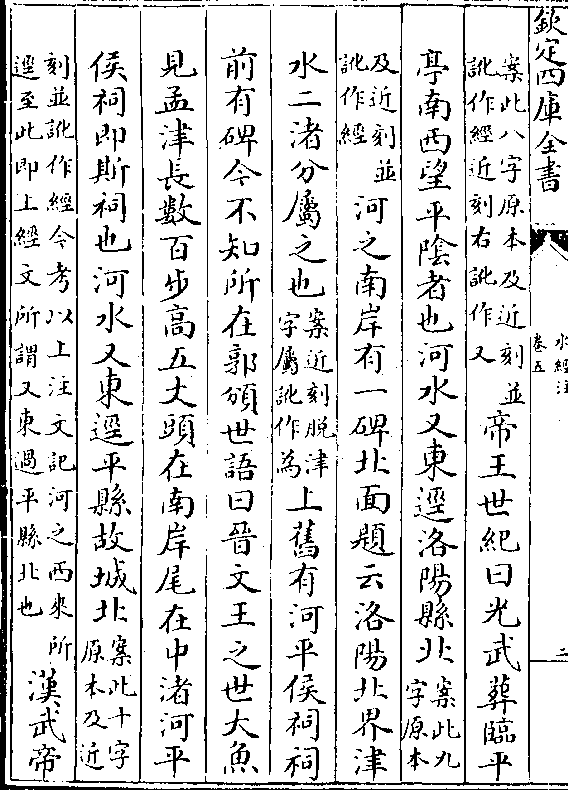 欽定四庫全書
水經注
卷五
二
案此八字原本及近刻並
訛作經近刻右訛作又
帝王世紀曰光武葬臨平
亭南西望平陰者也河水又東逕洛陽縣北
案此九
字原本
及近刻並
訛作經
河之南岸有一碑北面題云洛陽北界津
水二渚分屬之也
案近刻脱津
字屬訛作為
上舊有河平侯祠祠
前有碑今不知所在郭頒世語曰晉文王之世大魚
見孟津長數百步高五丈頭在南岸尾在中渚河平
侯祠即斯祠也河水又東逕平縣故城北
案此十字
原本及近
刻並訛作經今考以上注文記河之西來所
逕至此即上經文所謂又東過平縣北也
漢武帝